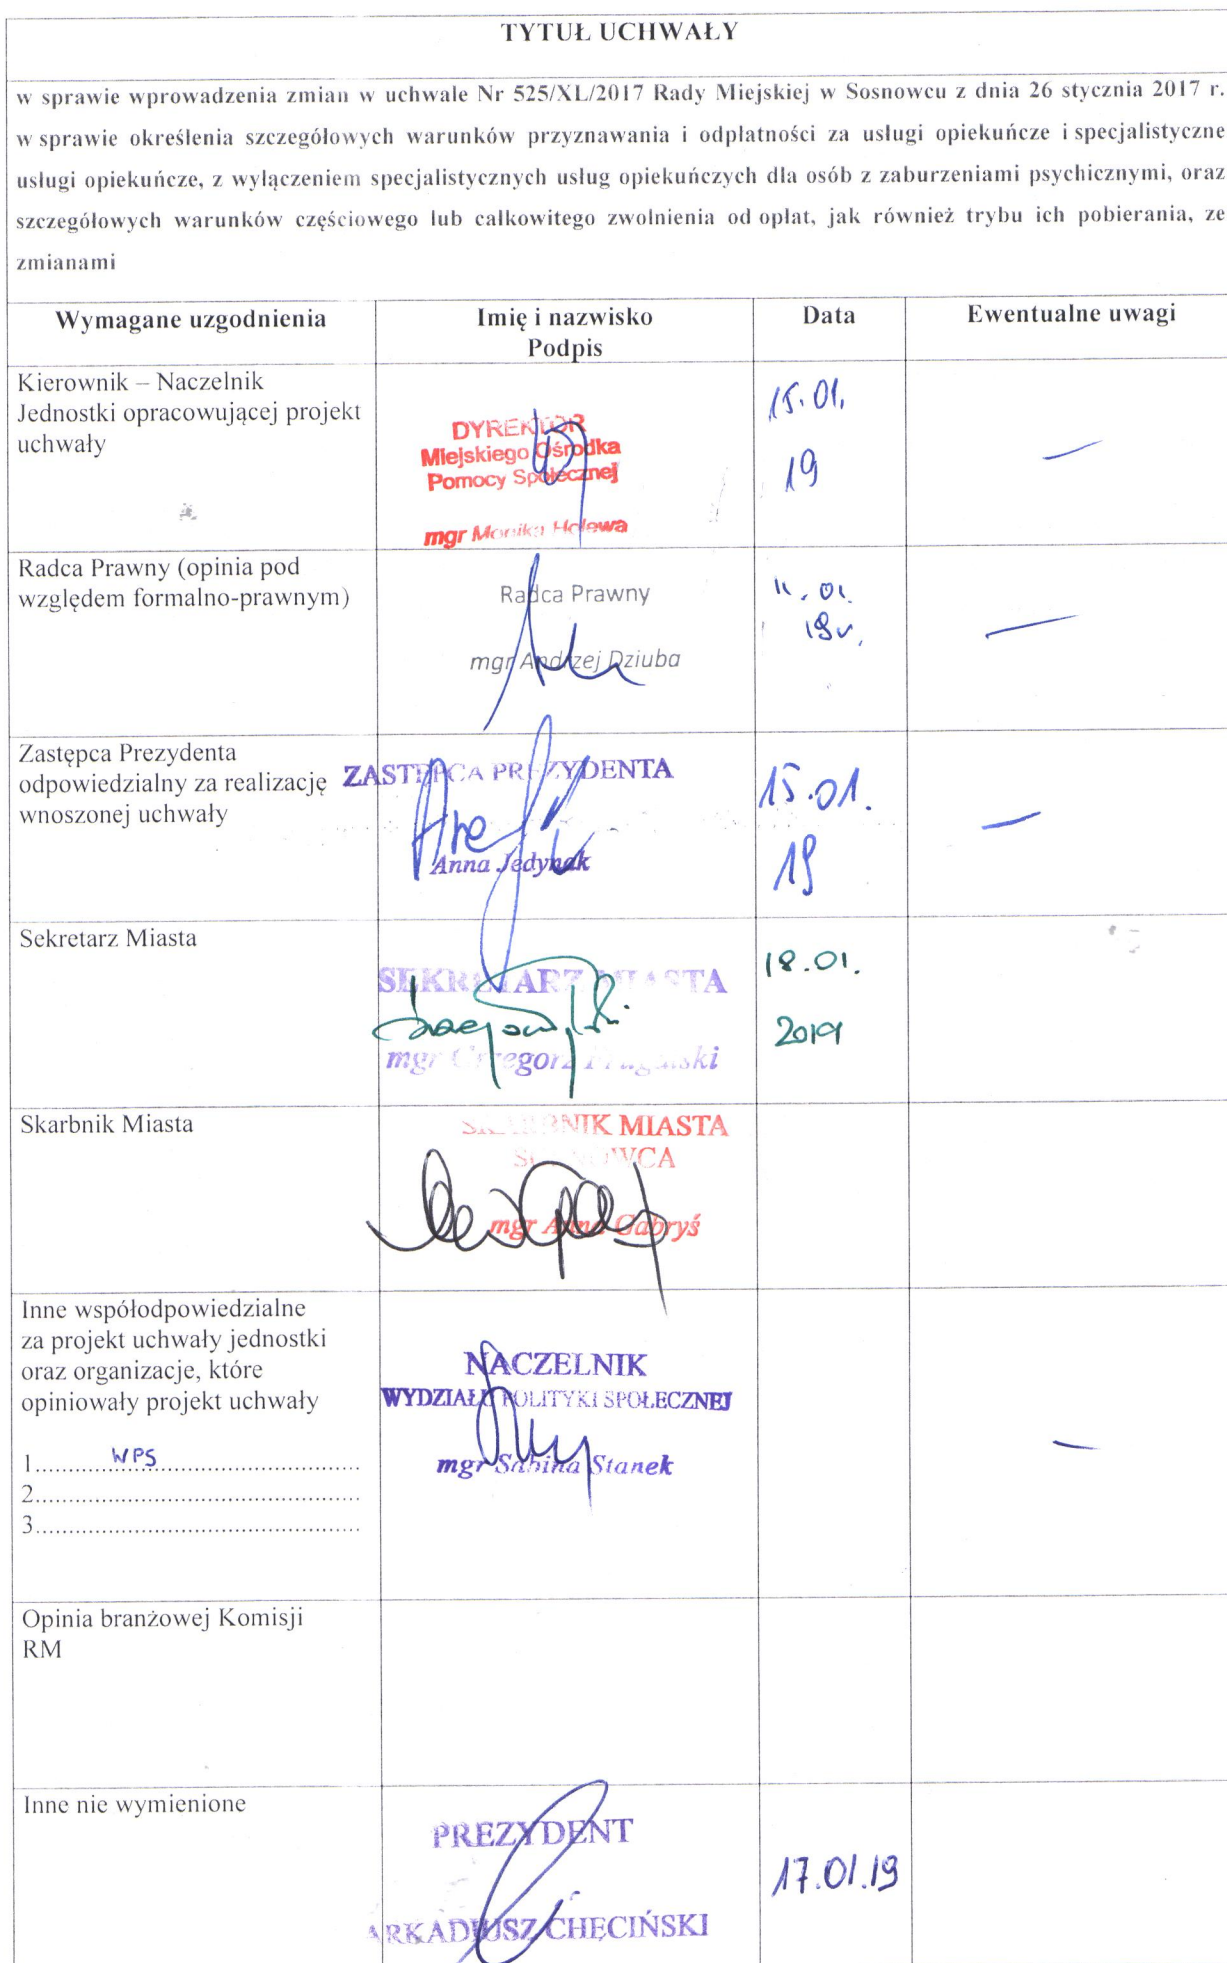 TYTUŁ UCHWAŁY
w sprawie wprowadzenia zmian w uchwale Nr 525/XL/2017 Rady Miejskiej w Sosnowcu z dnia 26 stycznia 2017 r.
w sprawie określenia szczegółowych warunków przyznawania i odpłatności za usługi opiekuńcze i specjalistyczne
usługi opiekuńcze, z wyłączeniem specjalistycznych usług opiekuńczych dla osób z zaburzeniami psychicznymi, oraz
szczegółowych warunków częściowego lub całkowitego zwolnienia od opłat, jak również trybu ich pobierania, ze
zmianami
Wymagane uzgodnienia
Imię i nazwisko
Podpis
Data
Ewentualne uwagi
Kierownik – Naczelnik
Jednostki opracowującej projekt
uchwały
DYREKTOR
Miejskiego Ośrodka
Pomocy Społecznej
mgr Monika Holewa
15.01.
19
—
Radca Prawny (opinia pod
względem formalno-prawnym)
Radca Prawny
mgr Andrzej Dziuba
11.01.
19r.
—
Zastępca Prezydenta
odpowiedzialny za realizację
wnoszonej uchwały
ZASTĘPCA PREZYDENTA
Anna Jedynak
15.01.
19
—
Sekretarz Miasta
SEKRETARZ MIASTA
mgr Grzegorz
18.01.
2019
Skarbnik Miasta
SKARBNIK MIASTA
SOSNOWCA
mgr Anna Gabryś
Inne współodpowiedzialne
za projekt uchwały jednostki
oraz organizacje, które
opiniowały projekt uchwały
1.......WPS.......
2..............
3..............
NACZELNIK
WYDZIAŁU POLITYKI SPOŁECZNEJ
mgr Sabina Stanek
—
Opinia branżowej Komisji
RM
Inne nie wymienione
PREZYDENT
ARKADIUSZ CHĘCIŃSKI
17.01.19